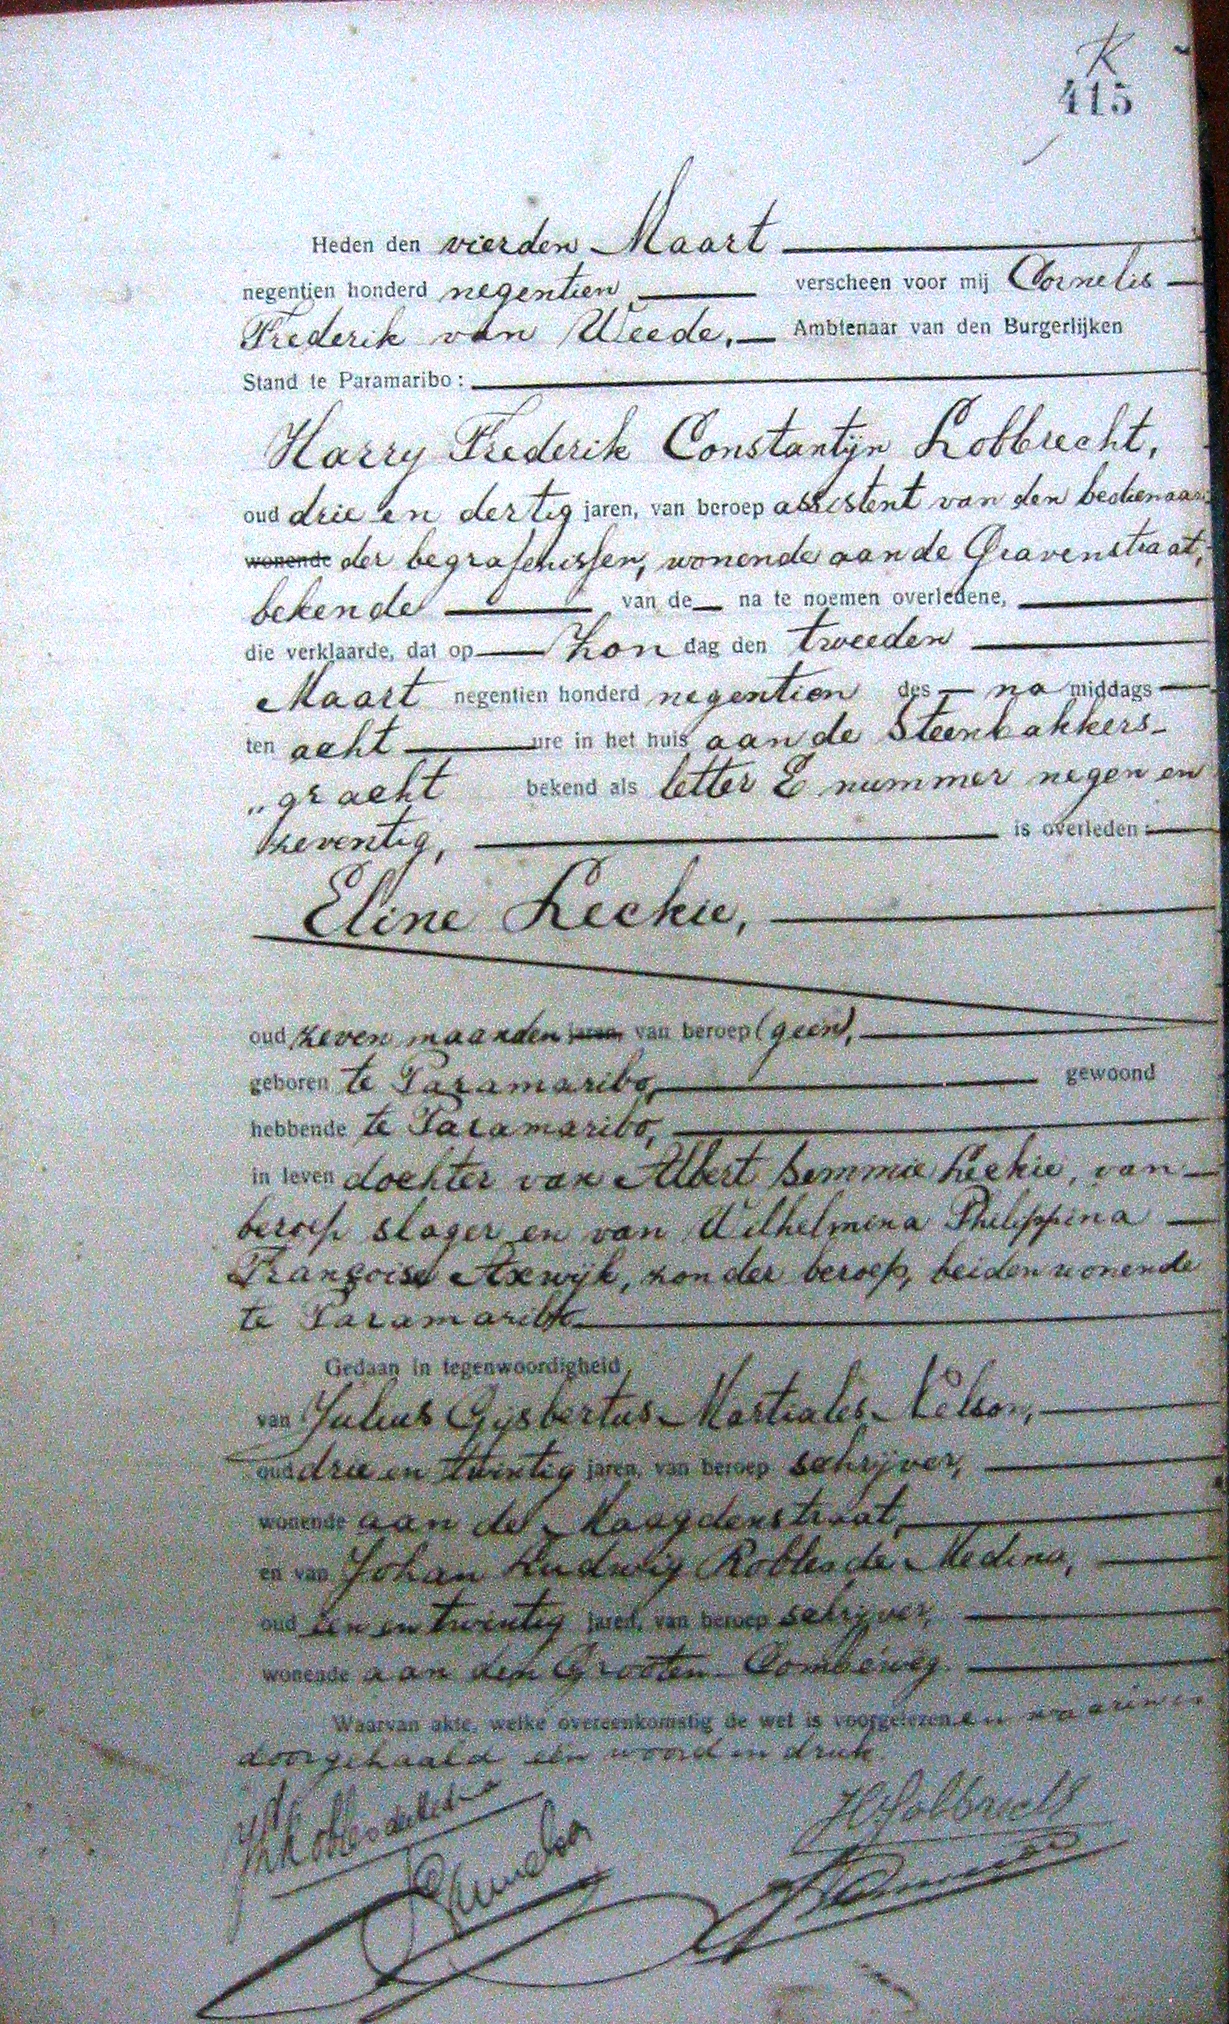 K
415
Heden den vierden Maart
negentien honderd negentien verscheen voor mij Cornelis
Frederik van Weede, Ambtenaar van den Burgerlijken
Stand te Paramaribo:
Harry Frederik Constantijn Lobbrecht,
oud drie en dertig jaren, van beroep assistent van den bedienaar
wonende der begrafenissen, wonende aan de Gravenstraat,
bekende van de na te noemen overledene,
die verklaarde, dat op Zon dag den tweeden
Maart negentien honderd negentien des na middags
ten acht ure in het huis aan de Steenbakkers-
"gracht bekend als letter E nummer negen en
zeventig, is overleden:
Eline Leckie,
oud zeven maanden jaren, van beroep (geen),
geboren te Paramaribo, gewoond
hebbende te Paramaribo,
in leven dochter van Albert Semmie Leckie, van
beroep slager en van Wilhelmina Philippina
Françoise Axwijk, zonder beroep, beiden wonende
te Paramaribo
Gedaan in tegenwoordigheid
van Julius Gijsbertus Martiales Nelson,
oud drie en twintig jaren, van beroep schrijver,
wonende aan de Maagdenstraat,
en van Johan Ludwig Robles de Medina,
oud één en twintig jaren, van beroep schrijver,
wonende aan den Grooten Combéweg.
Waarvan akte, welke overeenkomstig de wet is voorgelezen en waarin is
doorgehaald één woord in druk.